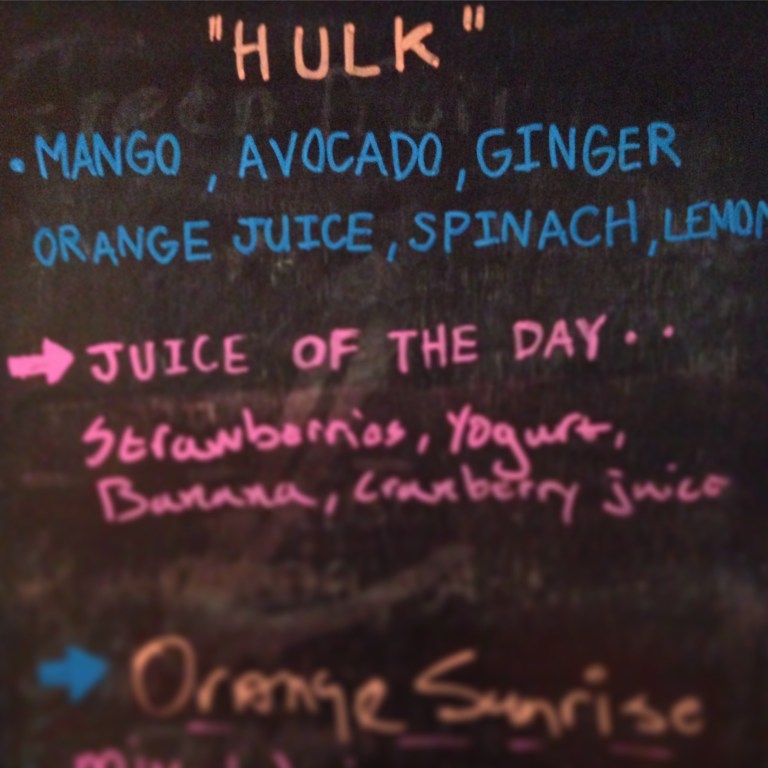 "HULK"
• MANGO, AVOCADO, GINGER
ORANGE JUICE, SPINACH, LEMON
→ JUICE OF THE DAY..
Strawberries, Yogurt,
Banana, Cranberry juice
→ Orange Sunrise